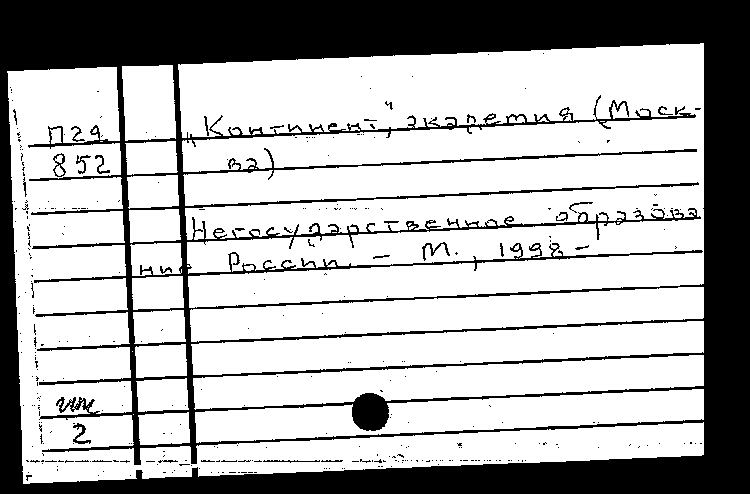 П24
852
„Континент", академия (Моск-
ва)
Негосударственное образова
ние России. – М., 1998 –
2